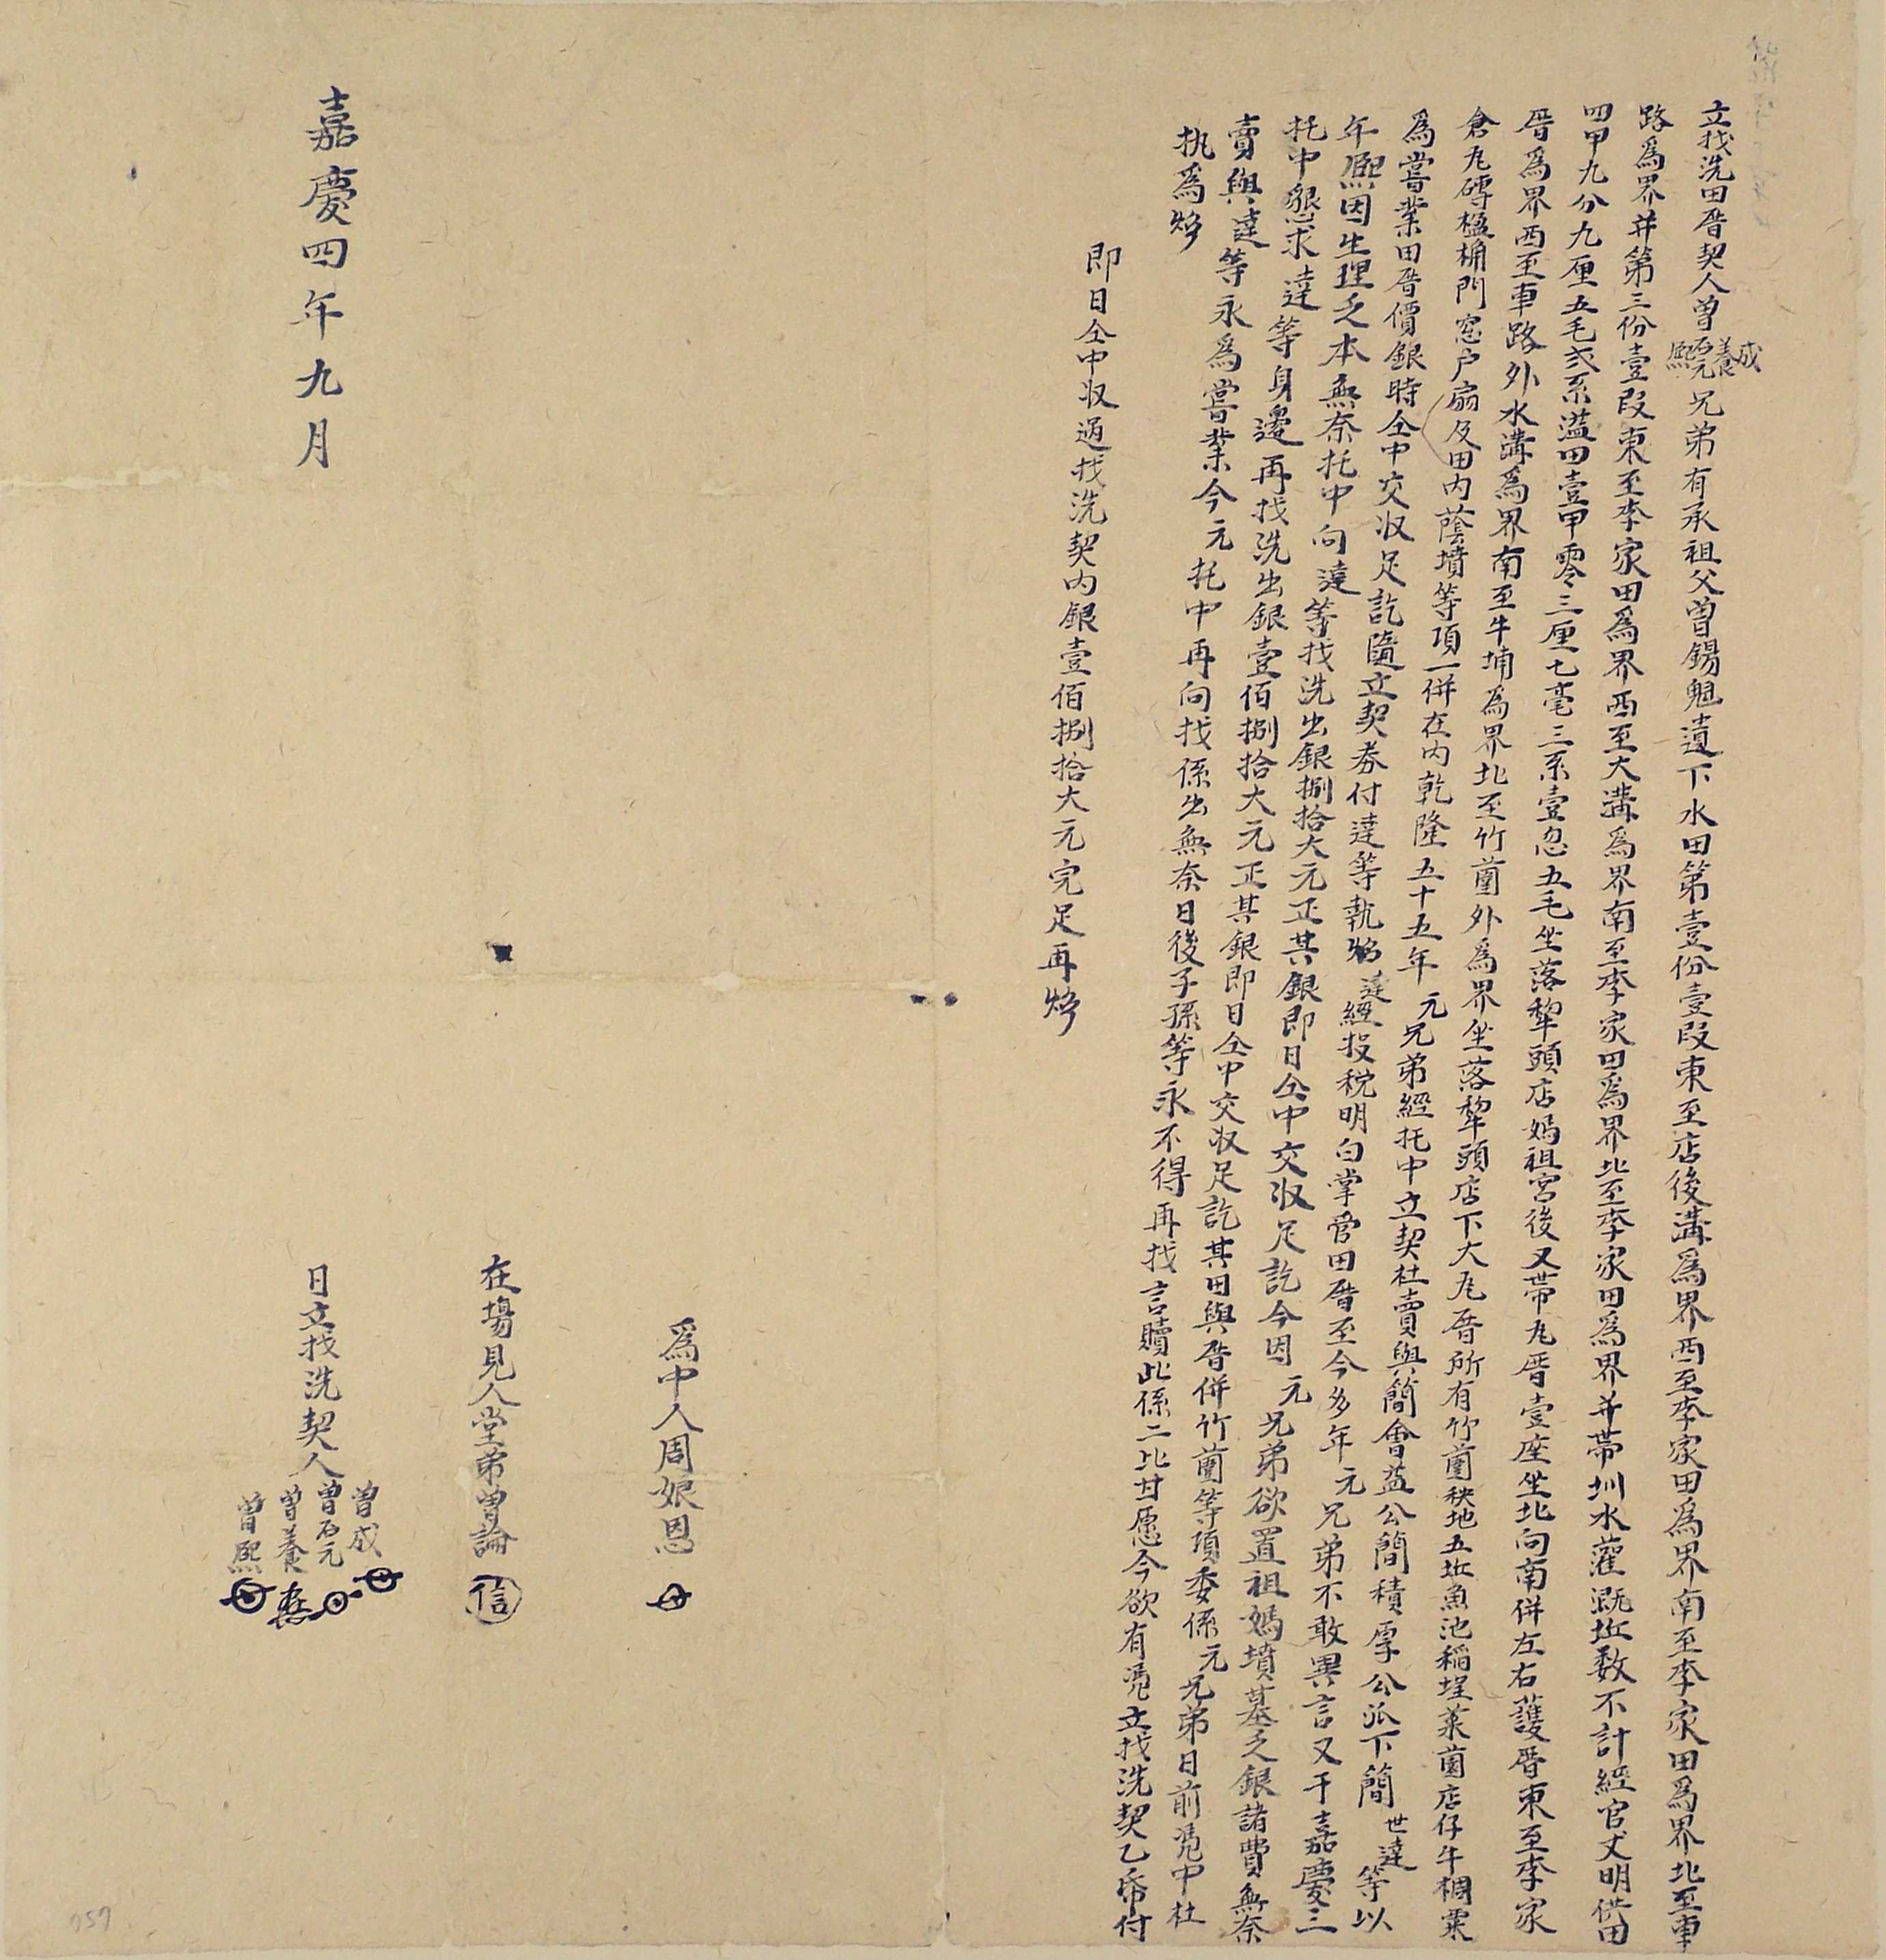 立找洗田厝契人曾成養石元熙兄弟有承祖父曾錫魁遺下水田第壹份壹段東至店後溝為界西至李家田為界南至李家田為界北至車
路為界并第三份壹段東至李家田為界西至大溝為界南至李家田為界北至李家田為界并帶圳水灌溉坵数不計經官丈明供田
四甲九分九厘五毛弍系溢田壹甲零三厘七毫三系壹忽五毛坐落犂頭店媽祖宮後又帶瓦厝壹座坐北向南併左右護厝東至李家
厝為界西至車路外水溝為界南至牛埔為界北至竹蘭外為界坐落犂頭店下大瓦厝所有竹蘭秧地五坵魚池稻埕菜園店仔牛稠粟
倉瓦磚楹桷門窓户扇及田内蔭墳等項一併在内乾隆五十五年元兄弟經托中立契杜賣與簡會益公簡積厚公派下簡世達等以
為嘗業田厝價銀時仝中交収足訖隨立契券付達等執炤達經投稅明白掌管田厝至今多年元兄弟不敢異言又于嘉慶三
年熙因生理乏本無奈托中向達等找洗出銀捌拾大元正其銀即日仝中交収足訖今因元兄弟欲置祖媽墳墓乏銀諸費無奈
托中懇求達等身邊再找洗出銀壹佰捌拾大元正其銀即日仝中交収足訖其田與厝併竹蘭等項委係元兄弟日前憑中杜
賣與達等永為嘗業今元托中再向找係出無奈日後子孫等永不得再找言贖此係二比甘愿今欲有憑立找洗契乙帋付
执為炤
即日仝中収過找洗契内銀壹佰捌拾大元完足再炤
為中人周娘恩
在塲見人堂弟曾論 信
嘉慶四年九月 日立找洗契人曾成
曾石元
曾養
曾熙
757